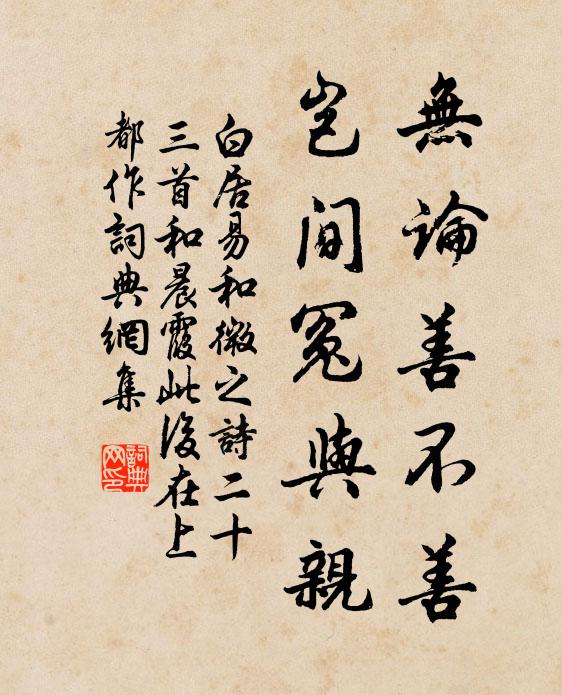 無論善不善
豈間冤與親
白居易和微之詩二十
三首和晨霞此後在上
都作詞典網集
詞典网印